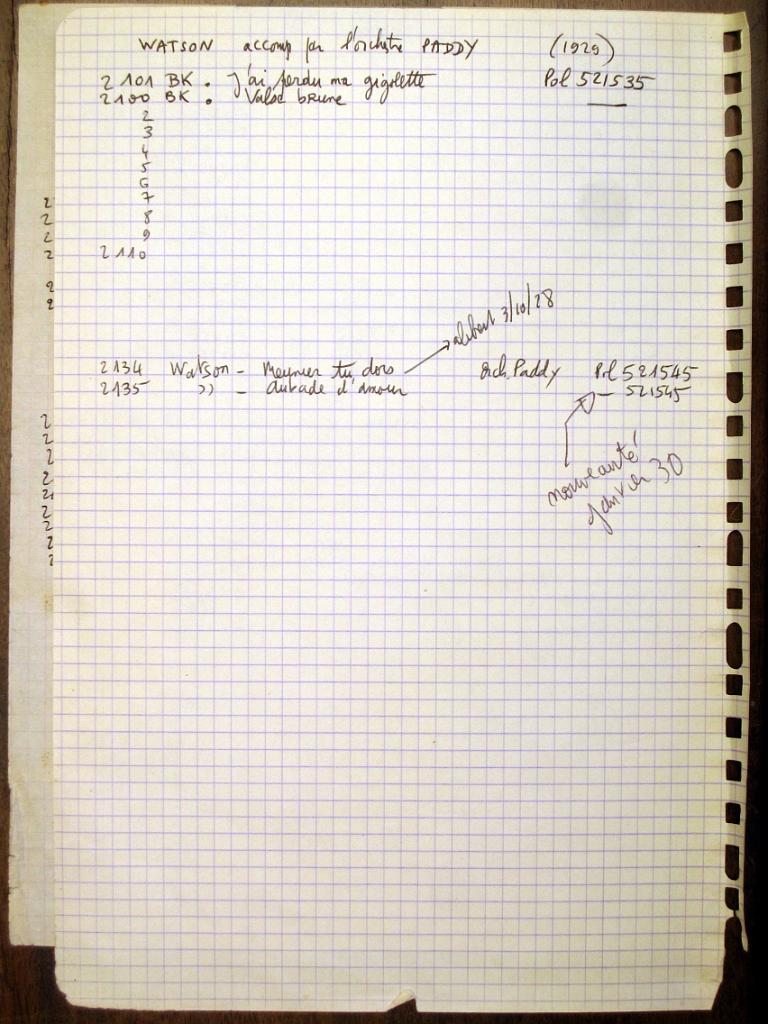 WATSON accomp par l'orchstre PADDY (1929)
2101 BK . J'ai perdu ma gigolette Pol 521535
2100 BK . Valse brune
2
3
4
5
6
7
8
9
2110
2
2
2
2
2
2
alibert 3/10/28
2134 Watson - Meunier tu dors Orch. Paddy Pol 521545
2135 " - Aubade d'amour - 521545
nouveauté
janvier 30
2
2
2
2
2
2
2
2
2